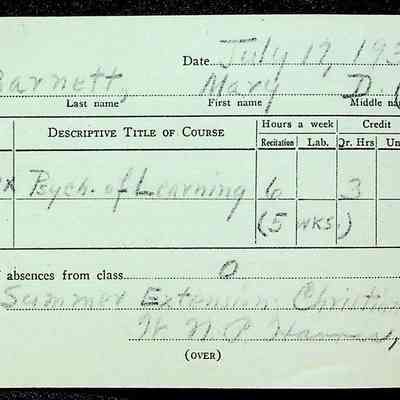 Date July 17, 193
Barnett, Mary D.
Last name First name Middle na
DESCRIPTIVE TITLE OF COURSE Hours a week Credit
Recitation Lab. Qr. Hrs Un
x Psych. of Learning 6 3
(5 WKS.)
absences from class 0
Summer Extension Christ
(OVER)